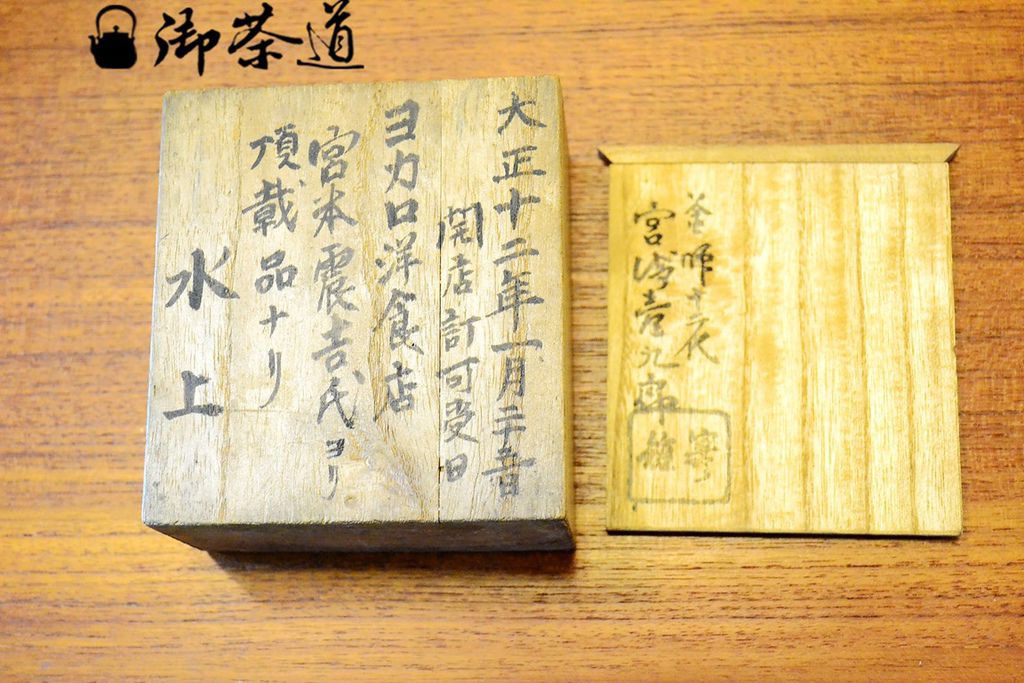 御茶道
大正十二年一月二十五日
開店許可受日
ヨカロ洋食店
宮本震吉氏ヨリ
頂戴品ナリ
水上
釜師十二代
宮崎寒雉